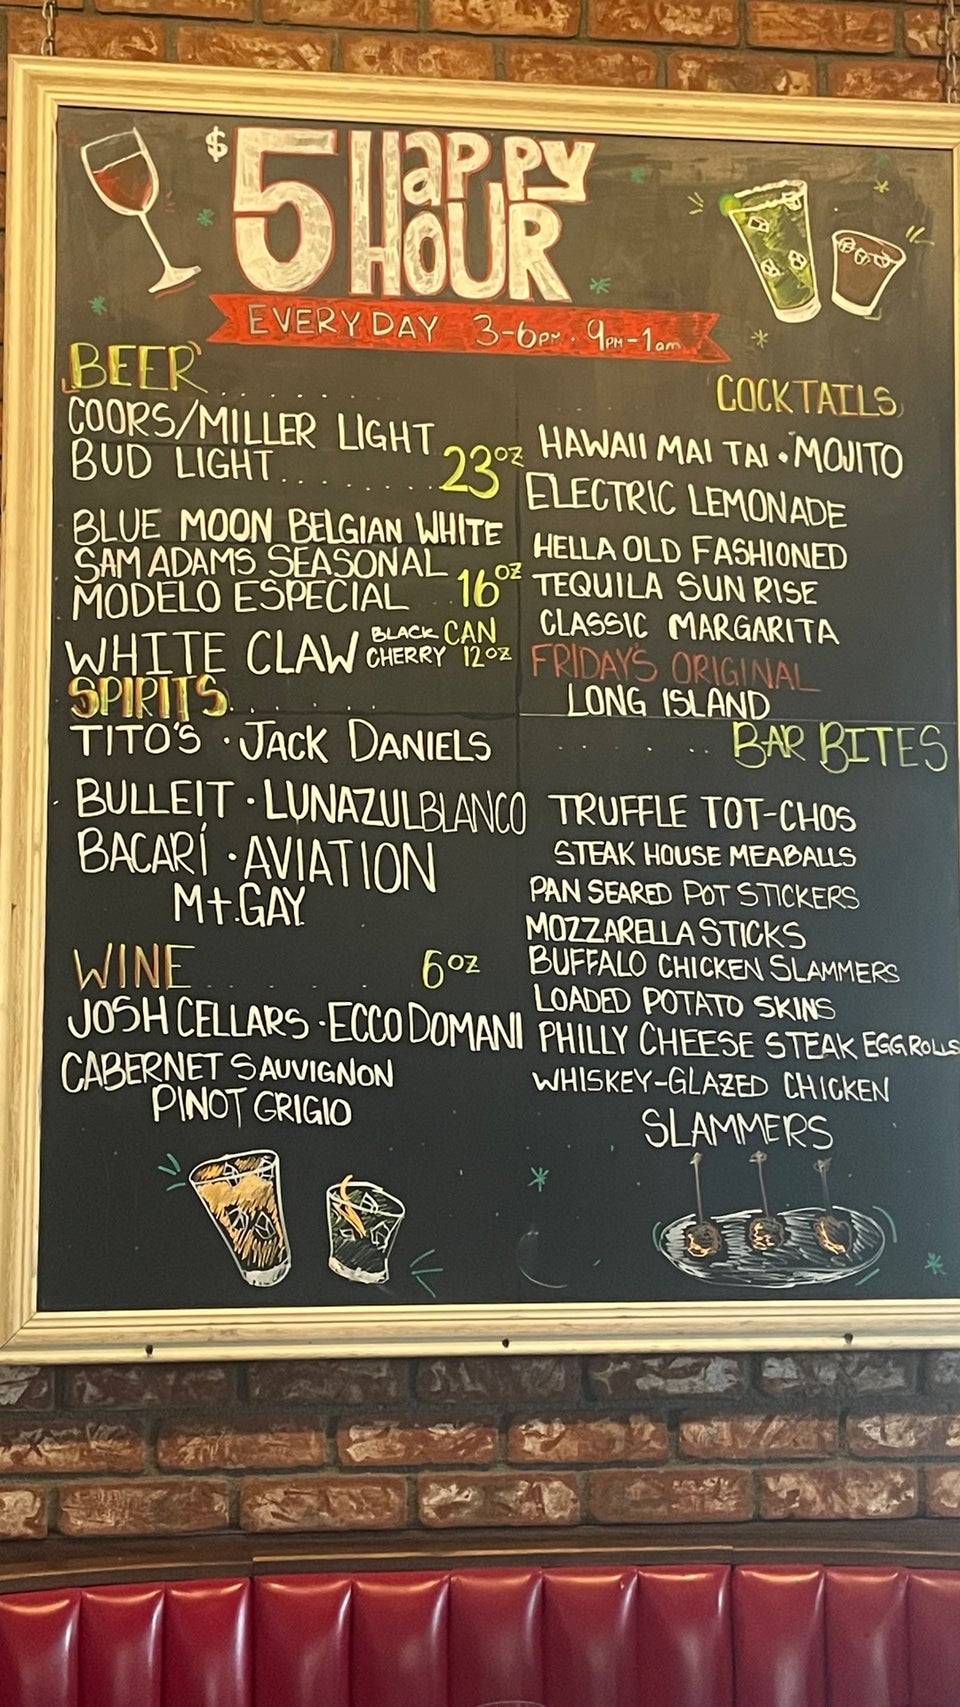 $5 HAPPY HOUR
EVERYDAY 3-6PM · 9PM-1am
BEER
COORS/MILLER LIGHT
BUD LIGHT........ 23oz
BLUE MOON BELGIAN WHITE
SAM ADAMS SEASONAL
MODELO ESPECIAL .. 16oz
WHITE CLAW BLACK CHERRY CAN 12oz
SPIRITS......
TITO'S · JACK DANIELS
BULLEIT · LUNAZUL BLANCO
BACARÍ · AVIATION
Mt. GAY
WINE...... 6oz
JOSH CELLARS · ECCO DOMANI
CABERNET SAUVIGNON
PINOT GRIGIO
COCKTAILS
HAWAII MAI TAI · MOJITO
ELECTRIC LEMONADE
HELLA OLD FASHIONED
TEQUILA SUN RISE
CLASSIC MARGARITA
FRIDAY'S ORIGINAL
LONG ISLAND
..... BAR BITES
TRUFFLE TOT-CHOS
STEAK HOUSE MEABALLS
PAN SEARED POT STICKERS
MOZZARELLA STICKS
BUFFALO CHICKEN SLAMMERS
LOADED POTATO SKINS
PHILLY CHEESE STEAK EGGROLLS
WHISKEY-GLAZED CHICKEN
SLAMMERS